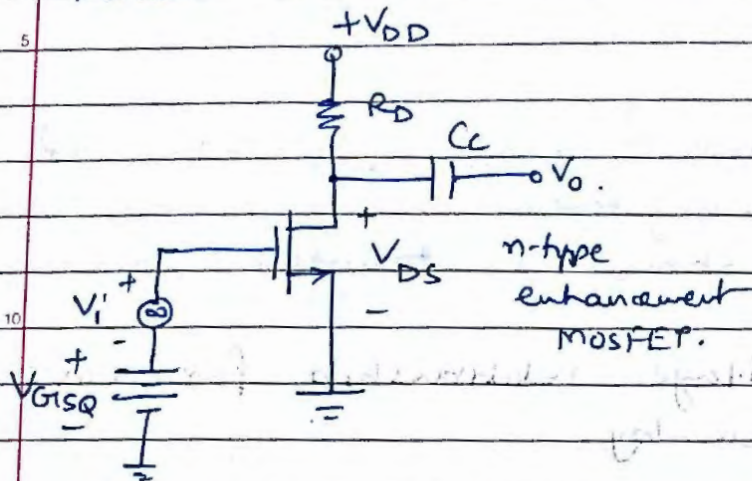 5
+VDD
RD
Cc
Vo.
+
VDS
-
n-type
enhancement
MOSFET.
+
Vi
-
10
+
VGSQ
-